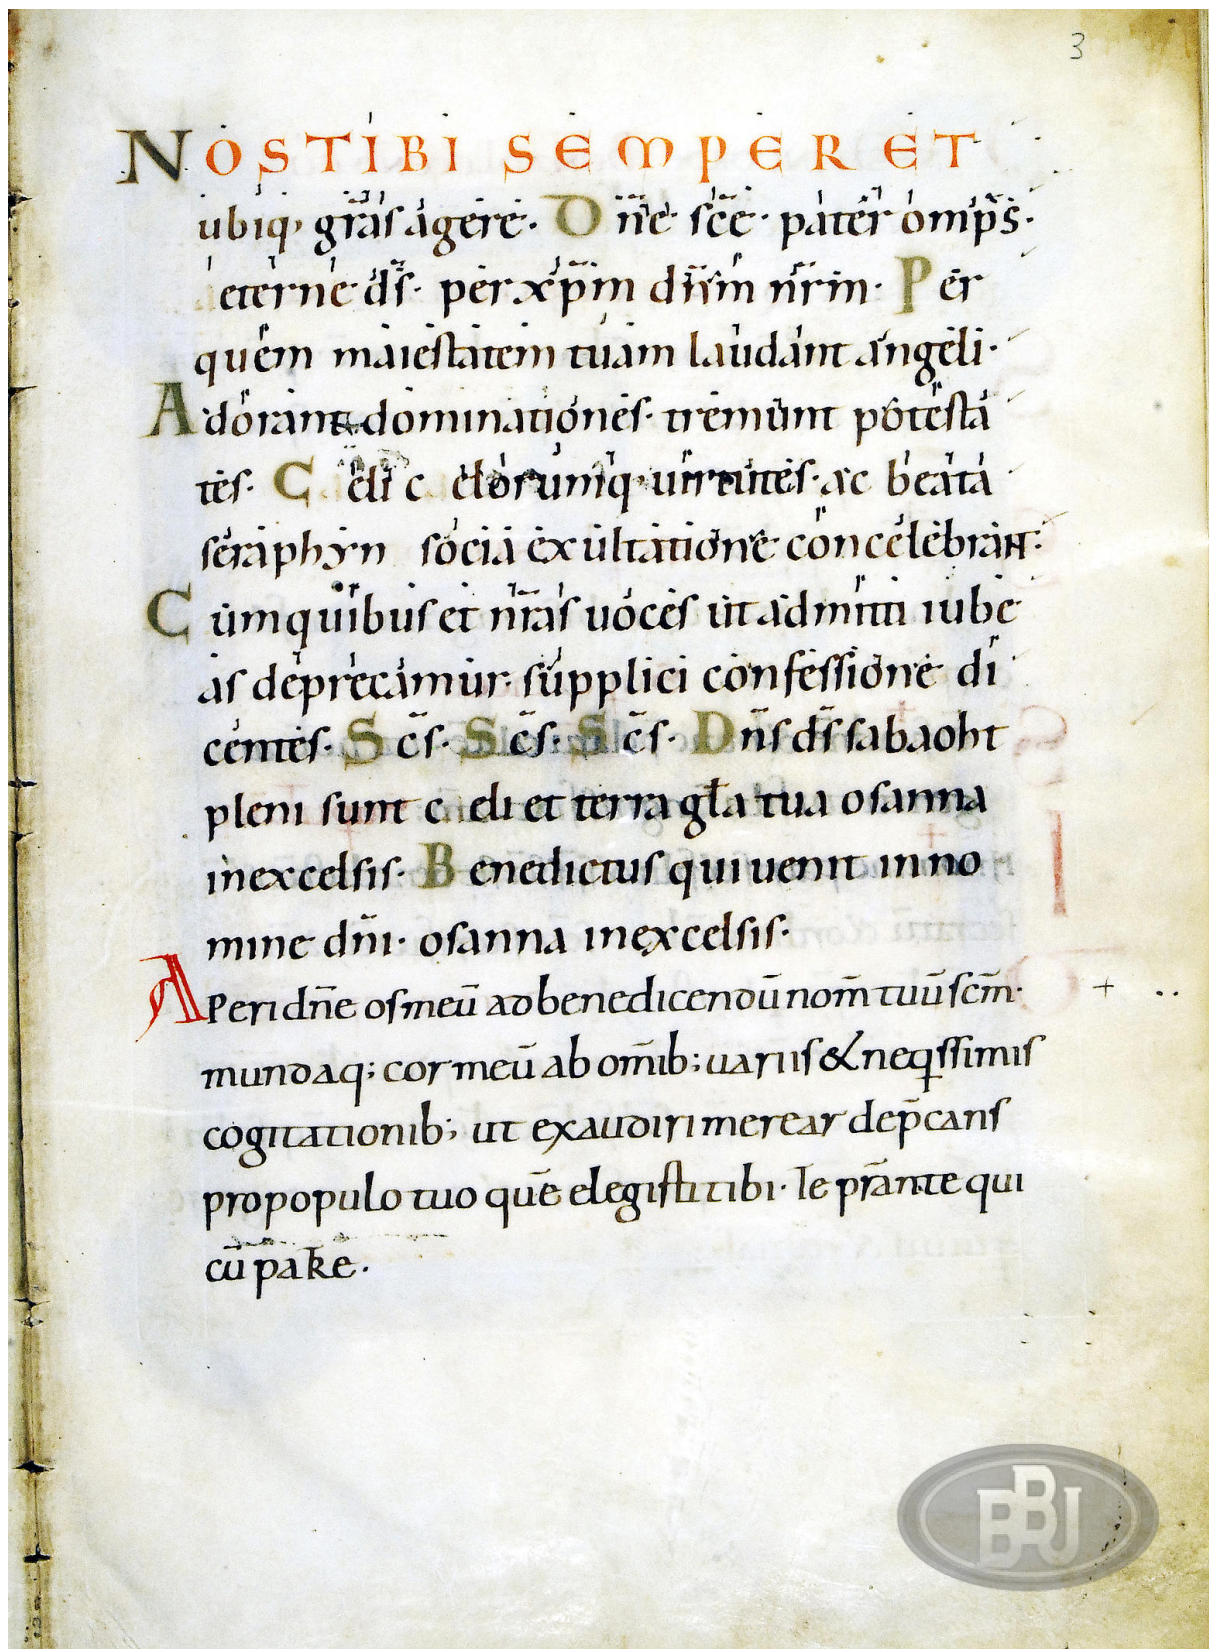 3
NOS TIBI SEMPER ET
ubiq; gr̄as agere. Dn̄e sc̄e. pater omp̄s.
eterne ds̄. per xp̄m dn̄m nr̄m. Per
quem maiestatem tuam laudant angeli.
Adorant dominationes. tremunt potesta
tes. Celi celorumq; uirtutes. ac beata
seraphyn socia exultatione concelebrant.
Cum quibus et nr̄as uoces ut admitti iube
as deprecamur. supplici confessione di
centes. Sc̄s. Sc̄s. Sc̄s. Dn̄s ds̄ sabaoht
pleni sunt celi et terra gl̄a tua osanna
in excelsis. Benedictus qui uenit in no
mine dn̄i. osanna in excelsis.
Aperi dn̄e os meū ad benedicendū nom̄ tuū sc̄m.
mundaq; cor meū ab om̄ib; uariis & neqssimis
cogitationib; ut exaudiri merear dep̄cans
pro populo tuo quē elegisti tibi. Ie pr̄ante qui
cū patre.
BBJ